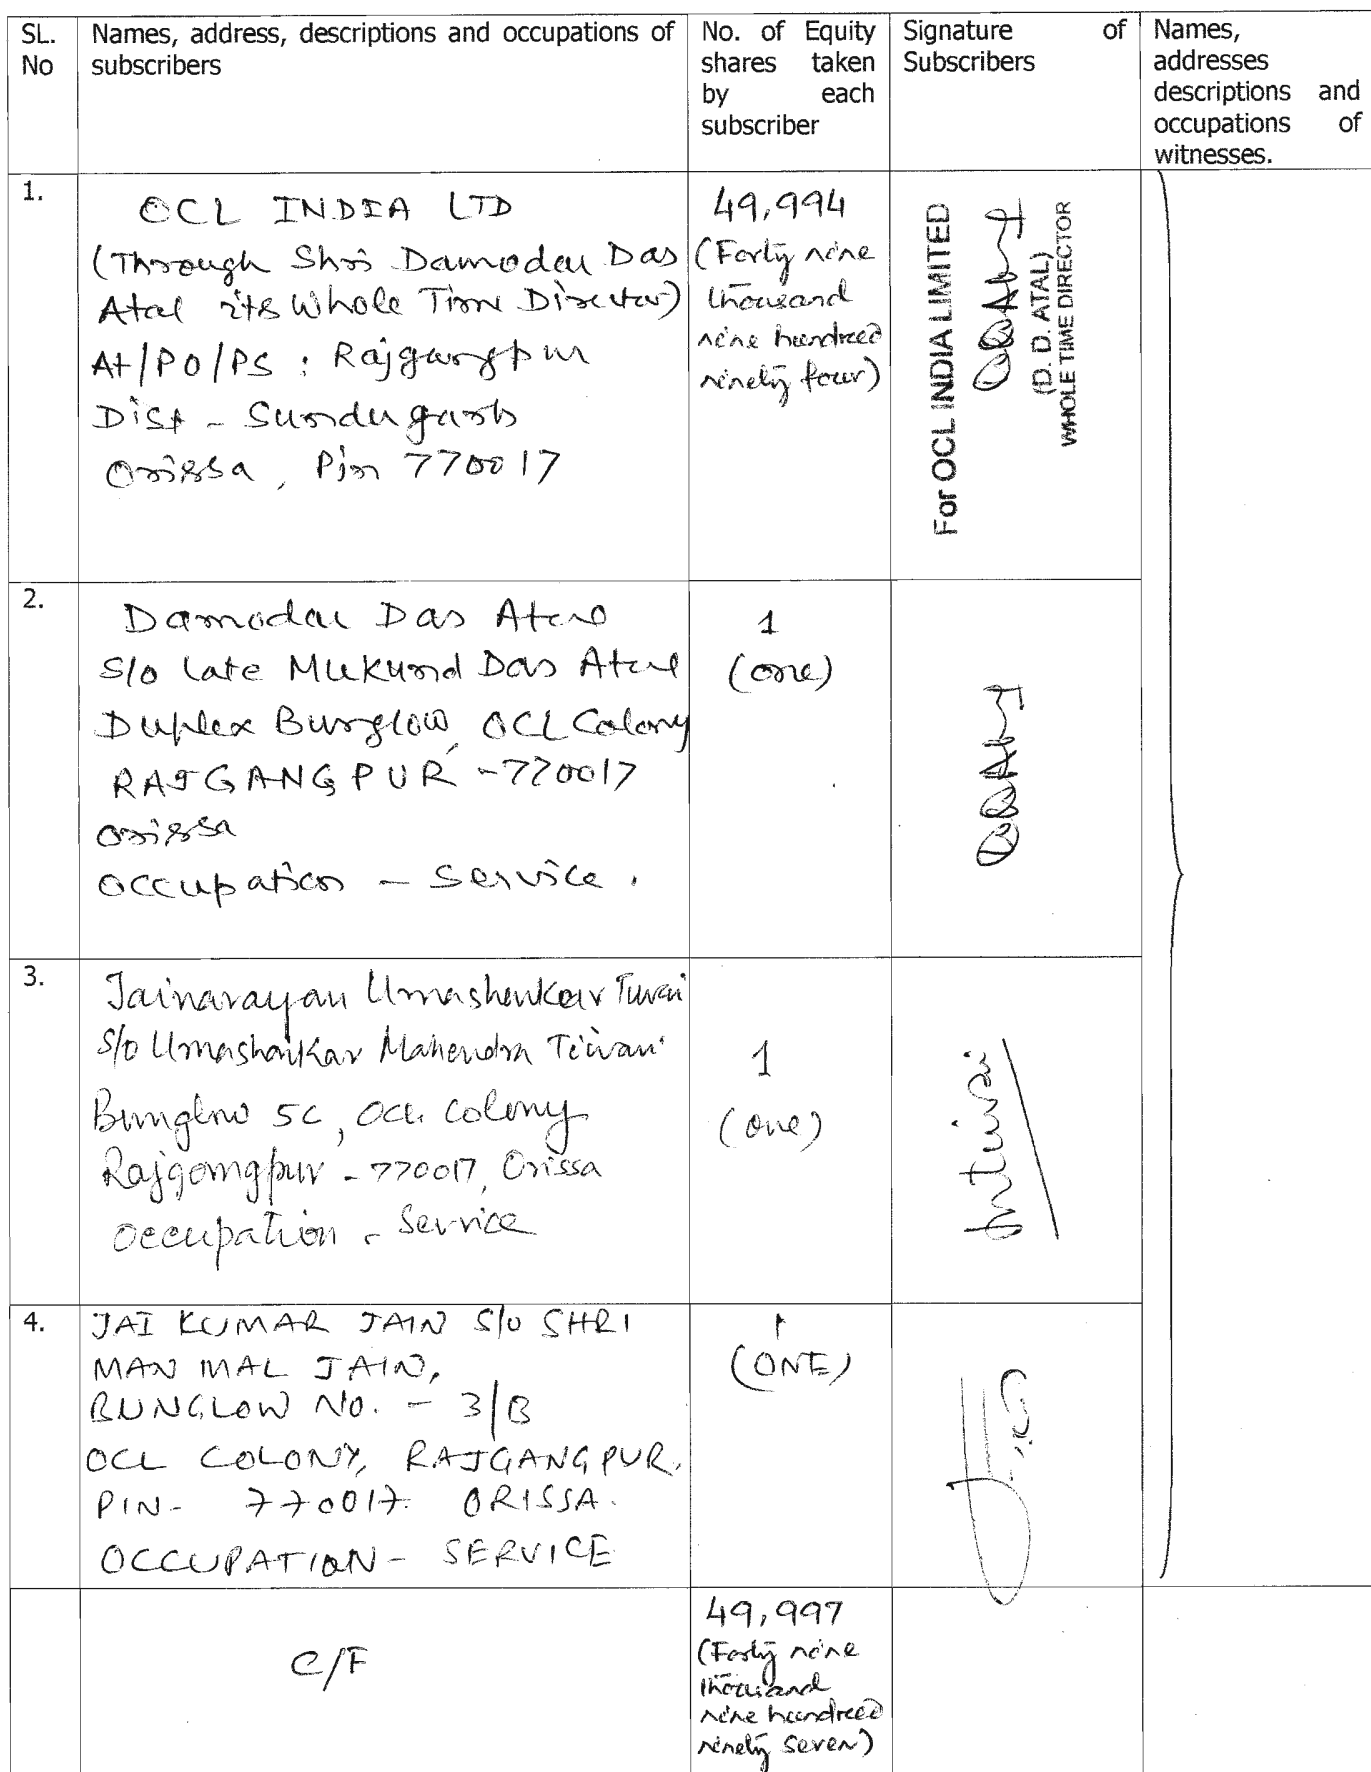 SL. No
Names, address, descriptions and occupations of subscribers
No. of Equity shares taken by each subscriber
Signature of Subscribers
Names, addresses descriptions and occupations of witnesses.
1.
OCL INDIA LTD
(Through Shri Damodar Das
Atal its Whole Time Director)
At/PO/PS : Rajgangpur
Dist - Sundergarh
Orissa, Pin 770017
49,994
(Forty nine
thousand
nine hundred
ninety four)
For OCL INDIA LIMITED
(D. D. ATAL)
WHOLE TIME DIRECTOR
2.
Damodar Das Atal
S/o Late Mukund Das Atal
Duplex Bunglow, OCL Colony
RAJGANGPUR - 770017
Orissa
Occupation - Service.
1
(one)
3.
Jainarayan Umashankar Tiwari
S/o Umashankar Mahendra Tiwari
Bunglow 5C, OCL Colony
Rajgangpur - 770017, Orissa
Occupation - Service
1
(one)
4.
JAI KUMAR JAIN S/O SHRI
MAN MAL JAIN,
BUNGLOW NO. - 3/B
OCL COLONY, RAJGANGPUR.
PIN- 770017. ORISSA.
OCCUPATION - SERVICE
1
(ONE)
C/F
49,997
(Forty nine
thousand
nine hundred
ninety seven)